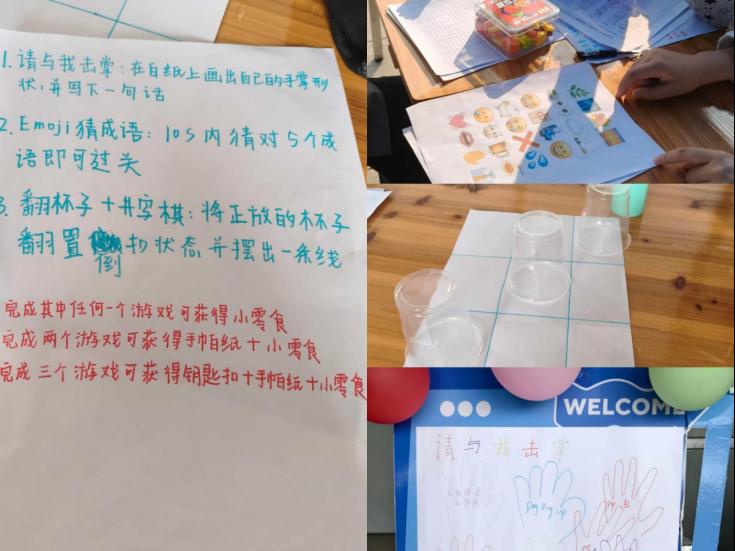 1. 请与我击掌：在白纸上画出自己的手掌形
状，并写下一句话
2. Emoji猜成语：10s内猜对5个成
语即可过关
3. 翻杯子+井字棋：将正放的杯子
翻置倒扣状态并摆出一条线
完成其中任何一个游戏可获得小零食
完成两个游戏可获得手帕纸+小零食
完成三个游戏可获得钥匙扣+手帕纸+小零食
WELCOME
请与我击掌